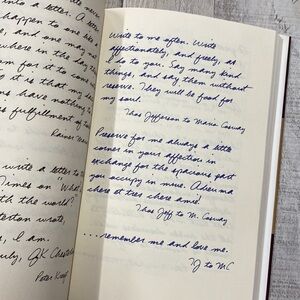 into a letter. A letter
and one may
happen to one like a
where in the day th
for it to come
it is that my se
have nothing
fulfillment of i
Rainer
write a letter to th
Times on "What
th the world?"
terton wrote,
, I am.
GK Cheste
Peter
Write to me often. Write
affectionately, and freely, as
I do to you. Say many kind
things, and say them without
reserve. They will be food for
my soul.
Thos Jefferson to Maria Cosway
Preserve for me always a little
corner in your affection in
exchange for the spacious part
you occupy in mine. Adieu ma
chere et tres chere amie!
Thos Jeff to M. Cosway
....remember me and love me.
TJ to MC